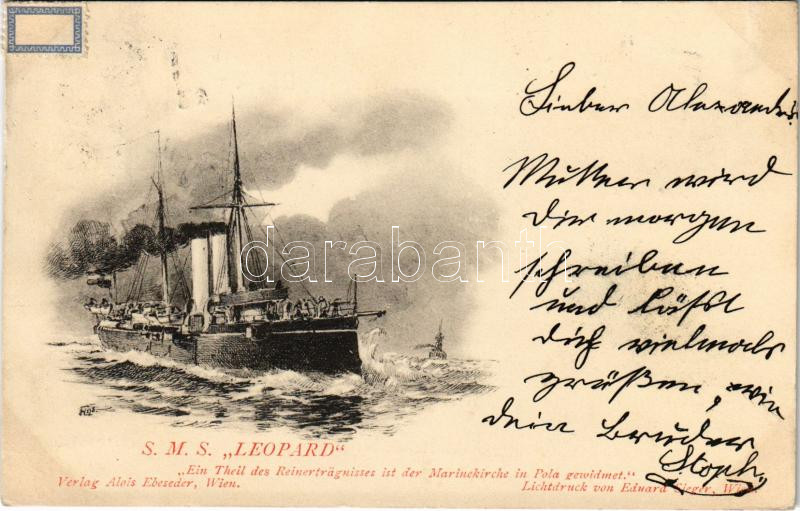 Lieber Alexander!
Mutter wird
Dir morgen
schreiben
und läßt
dich vielmals
grüßen, wie
dein Bruder
Steph.
darabanth
S. M. S. „LEOPARD“
„Ein Theil des Reinerträgnisses ist der Marinekirche in Pola gewidmet.“
Verlag Alois Ebeseder, Wien. Lichtdruck von Eduard Sieger, Wien.